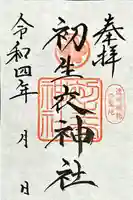 奉拝
初生衣神社
令和四年 月 日